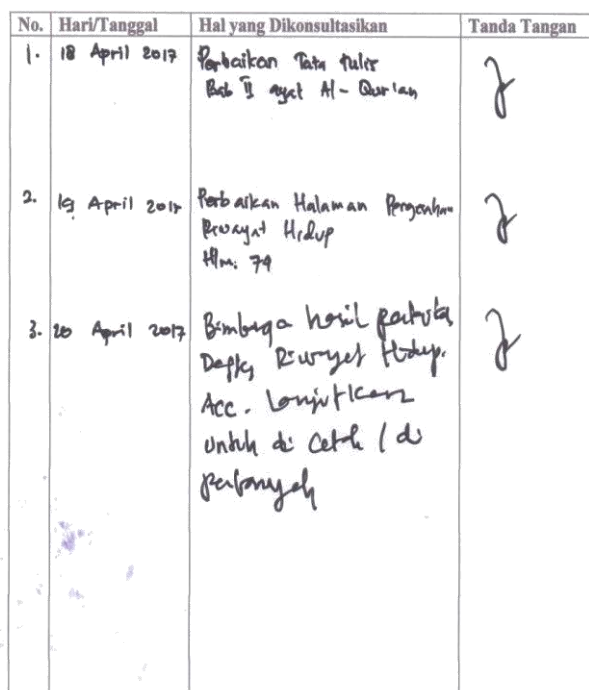 No. Hari/Tanggal Hal yang Dikonsultasikan Tanda Tangan
1. 18 April 2017 Perbaikan Tata tulis
Bab II ayat Al-Qur'an
2. 19 April 2017 Perbaikan Halaman
Riwayat Hidup
Hlm. 74
3. 20 April 2017 hasil
Riwayat Hidup.
Acc. Lanjutkan
untuk di cetak / di